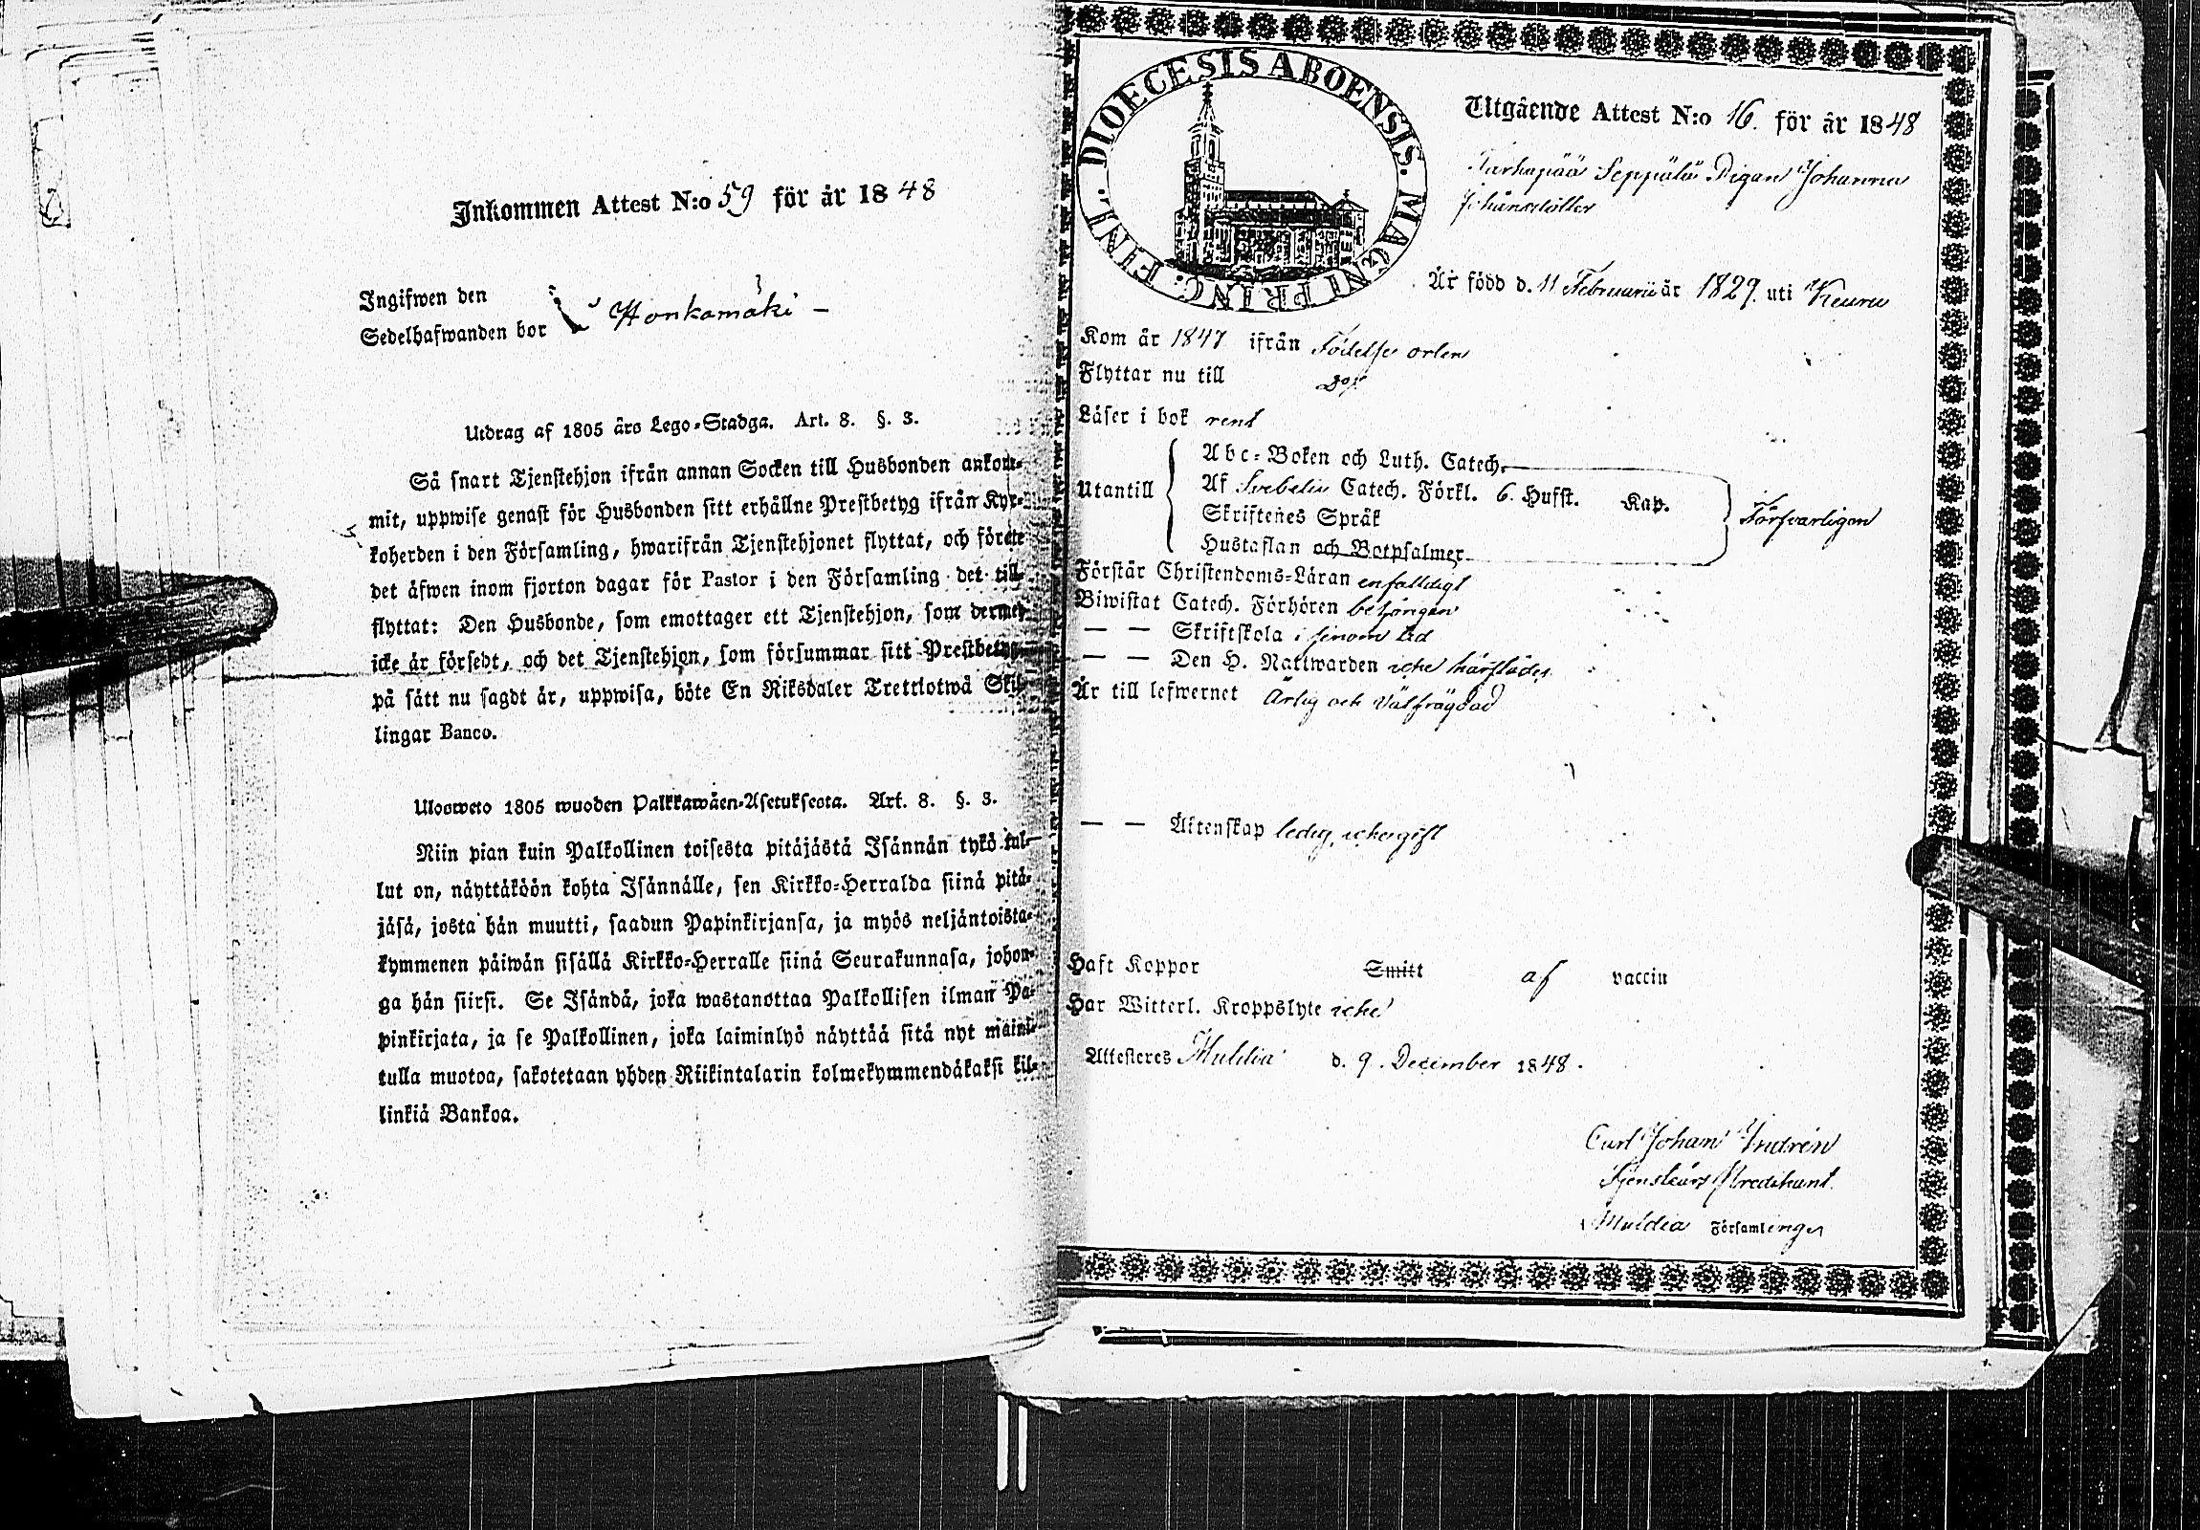 Inkommen Attest N:o 59 för år 1848
Ingifwen den
Sedelhafwanden bor Honkamäki –
Utdrag af 1805 års Lego-Stadga. Art. 8. §. 3.
Så snart Tjenstehjon ifrån annan Socken till Husbonden ankom-
mit, uppwise genast för Husbonden sitt erhållne Prestbetyg ifrån Kyr-
koherden i den Församling, hwarifrån Tjenstehjonet flyttat, och förete
det äfwen inom fjorton dagar för Pastor i den Församling det till-
flyttat: Den Husbonde, som emottager ett Tjenstehjon, som dermed
icke är försedt, och det Tjenstehjon, som försummar sitt Prestbetyg
på sätt nu sagdt är, uppwisa, böte En Riksdaler Trettiotwå Skil-
lingar Banco.
Ulosweto 1805 wuoden Palkkawäen-Asetuksesta. Art. 8. §. 3.
Niin pian kuin Palkollinen toisesta pitäjästä Isännän tykö tul-
lut on, näyttäköön kohta Isännälle, sen Kirkko-Herralda siinä pitä-
jäsä, josta hän muutti, saadun Papinkirjansa, ja myös neljäntoista-
kymmenen päiwän sisällä Kirkko-Herralle siinä Seurakunnasa, johon-
ga hän siirsi. Se Isändä, joka wastanottaa Palkollisen ilman Pa-
pinkirjata, ja se Palkollinen, joka laiminlyö näyttää sitä nyt maini-
tulla muotoa, sakotetaan yhden Riikintalarin kolmekymmendäkaksi kil-
linkiä Bankoa.
DIOECESIS ABOENSIS. MAGNI PRINC. FINL.
Utgående Attest N:o 16. för år 1848
Seppälä Pigan Johanna
Johansdotter
Är född d. 11 Februarii år 1829. uti Keuru
Kom år 1847 ifrån Födelse orten
Flyttar nu till Do
Läser i bok rent
Abc-Boken och Luth. Catech.
Utantill Af Svebelii Catech. Förkl. 6. Hufst. Kap. Försvarligen
Skriftenes Språk
Hustaflan och Botpsalmer
Förstår Christendoms-Läran enfaldigt
Biwistat Catech. Förhören behörigen
— — Skriftskola i sinom tid
— — Den H. Nattwarden icke härstädes
Är till lefwernet Ärlig och Välfrägdad
— — Äktenskap ledig, icke gift
Haft Koppor Smitt af vaccin
Har Witterl. Kroppslyte icke
Attesteres Multia d. 9. December 1848.
Carl Johan Indrén
Tjenstförs Predikant.
i Multia Församlingen